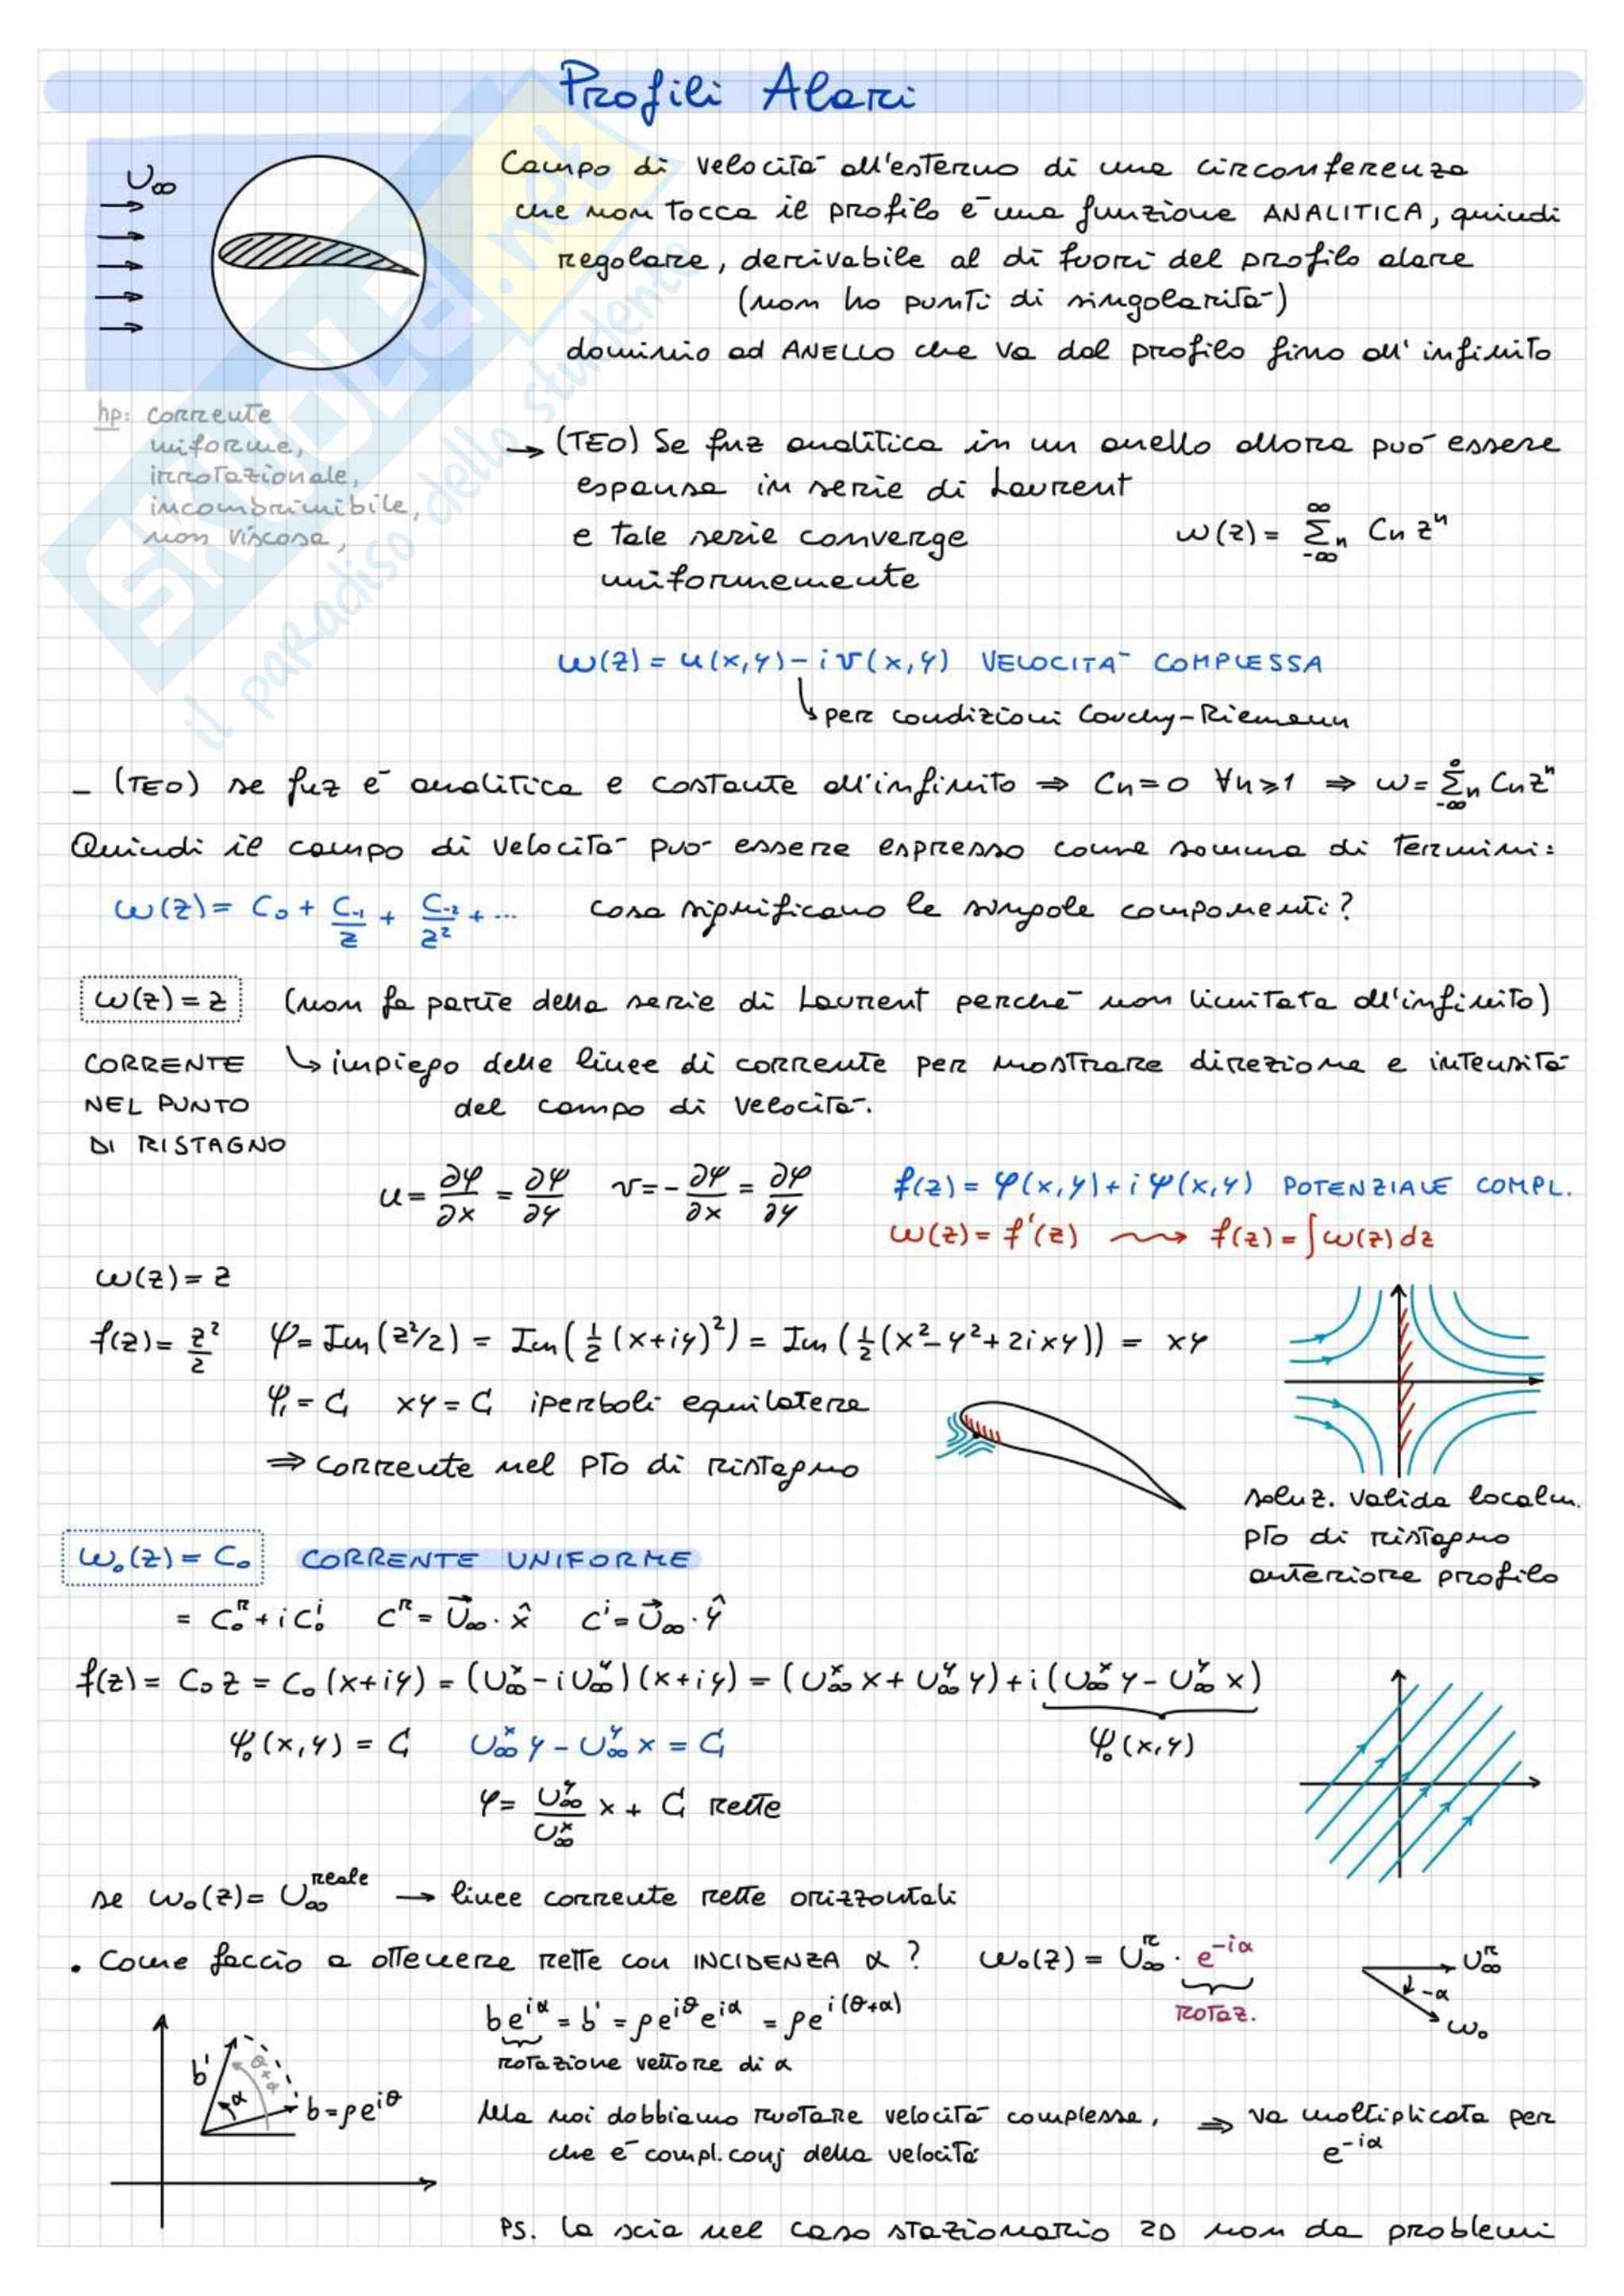 Profili Alari
U∞
Campo di velocità all'esterno di una circonferenza
che non tocca il profilo è una funzione ANALITICA, quindi
regolare, derivabile al di fuori del profilo alare
(non ho punti di singolarità)
dominio ad ANELLO che va dal profilo fino all'infinito
hp: corrente
uniforme,
irrotazionale,
incombrimibile,
non viscosa,
→ (TEO) Se fnz analitica in un anello allora può essere
espansa in serie di Laurent
e tale serie converge
uniformemente
w(z) = Σₙ Cn zⁿ
∞
-∞
w(z) = u(x,y) - i v(x,y) VELOCITÀ COMPLESSA
↳ per condizioni Cauchy-Riemann
- (TEO) se fnz è analitica e costante all'infinito ⇒ Cn=0 ∀n≥1 ⇒ w = Σₙ Cn zⁿ
0
-∞
Quindi il campo di velocità può essere espresso come somma di termini:
w(z) = C₀ + C₋₁/z + C₋₂/z² + ... cosa significano le singole componenti?
w(z) = z (non fa parte della serie di Laurent perché non limitata all'infinito)
CORRENTE
NEL PUNTO
DI RISTAGNO
↳ impiego delle linee di corrente per mostrare direzione e intensità
del campo di velocità.
u = ∂φ/∂x = ∂ψ/∂y v = -∂ψ/∂x = ∂φ/∂y
f(z) = φ(x,y) + i ψ(x,y) POTENZIALE COMPL.
w(z) = f'(z) ⇝ f(z) = ∫ w(z) dz
w(z) = z
f(z) = z²/2 ψ = Im(z²/2) = Im(½(x+iy)²) = Im(½(x²-y²+2ixy)) = xy
ψ₁ = C₁ xy = C₁ iperboli equilatere
⇒ corrente nel pto di ristagno
soluz. valida localm.
pto di ristagno
anteriore profilo
w₀(z) = C₀ CORRENTE UNIFORME
= C₀ᴿ + i C₀ⁱ Cᴿ = U⃗∞ · x̂ Cⁱ = U⃗∞ · ŷ
f(z) = C₀ z = C₀ (x+iy) = (U∞ˣ - i U∞ʸ)(x+iy) = (U∞ˣ x + U∞ʸ y) + i (U∞ˣ y - U∞ʸ x)
ψ₀(x,y) = C₁ U∞ˣ y - U∞ʸ x = C₁ ψ₀(x,y)
y = U∞ʸ/U∞ˣ x + C₁ rette
se w₀(z) = U∞ʳᵉᵃˡᵉ → linee corrente rette orizzontali
• Come faccio a ottenere rette con INCIDENZA α? w₀(z) = U∞ᴿ · e^-iα
ROTAZ.
U∞ᴿ
-α
w₀
b e^iα = b' = ρe^iθ e^iα = ρe^i(θ+α)
rotazione vettore di α
b'
α
θ+α
b = ρe^iθ
Ma noi dobbiamo ruotare velocità complessa, ⇒ va moltiplicata per
che è compl. conj della velocità e^-iα
PS. la scia nel caso stazionario 2D non da problemi
SKUOLA.net
il paradiso dello studente